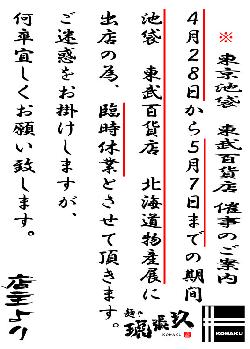 ※ 東京池袋 東武百貨店 催事のご案内
4月28日から5月7日までの期間
池袋 東武百貨店 北海道物産展に
出店の為、臨時休業とさせて頂きます。
ご迷惑をお掛けしますが、
何卒宜しくお願い致します。
店主より
麺や 琥張玖
KOHAKU
KOHAKU